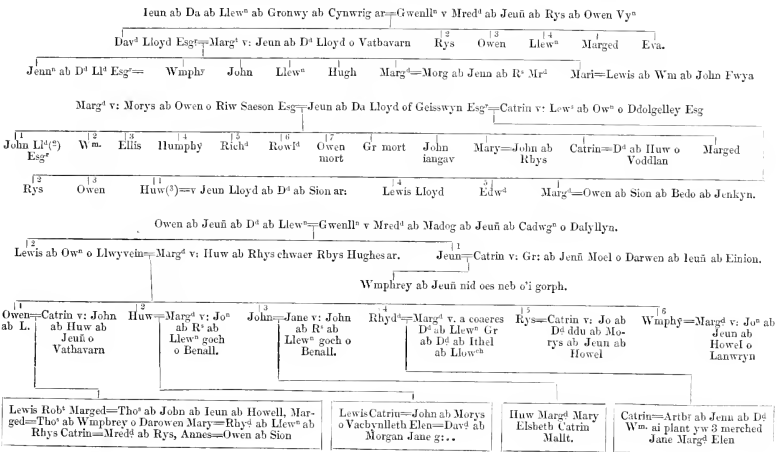 Ieun ab Da ab Llewⁿ ab Gronwy ab Cynwrig ar=Gwenllⁿ v Mredᵈ ab Jeuñ ab Rys ab Owen Vyⁿ
Davᵈ Lloyd Esgʳ=Margᵗ v: Jeun ab Dᵈ Lloyd o Vatbavarn |2 Rys |3 Owen |4 Llewⁿ Marged Eva.
Jennⁿ ab Dᵈ Llᵈ Esgʳ= Wmphy John Llewⁿ Hugh Margᵈ=Morg ab Jenn ab Rˢ Mrᵈ Mari=Lewis ab Wm ab John Fwya
Margᵈ v: Morys ab Owen o Riw Saeson Esg=Jeun ab Da Lloyd of Geisswyn Esgʳ=Catrin v: Lewˢ ab Owⁿ o Ddolgelley Esg
|1 |2 |3 |4 |5 |6 |7
John Llᵈ(²) Wᵐ. Ellis Humphy Richᵈ Rowlᵈ Owen Gr mort John Mary=John ab Catrin=Dᵈ ab Huw o Marged
Esgʳ mort iangav Rbys Voddlan
|2 Rys |3 Owen |1 Huw(³)=v Jeun Lloyd ab Dᵈ ab Sion ar: |4 Lewis Lloyd 5| Edwᵈ Margᵈ=Owen ab Sion ab Bedo ab Jenkyn.
Owen ab Jeuñ ab Dᵈ ab Llewⁿ=Gwenllⁿ v Mredᵈ ab Madog ab Jeuñ ab Cadwgⁿ o Dalyllyn.
|2 |1
Lewis ab Owⁿ o Llwyvein=Margᵈ v: Huw ab Rhys chwaer Rbys Hughes ar. Jeun=Catrin v: Gr: ab Jenñ Moel o Darwen ab Ieuñ ab Einion.
Wmphrey ab Jeuñ nid oes neb o'i gorph.
|1 |2 |3 |4 |5 |6
Owen=Catrin v: John Huw=Margᵈ v: Joⁿ John=Jane v: John Rhydᵈ=Margᵈ v. a coaeres Rys=Catrin v: Jo ab Wmphy=Margᵈ v: Joⁿ ab
ab L. ab Huw ab ab Rˢ ab ab Rˢ ab Dᵈ ab Llewⁿ Gr Dᵈ ddu ab Mo- Jeun ab
Jeuñ o Llewⁿ goch Llewⁿ goch o ab Dᵈ ab Ithel rys ab Jeun ab Howel o
Vathavarn o Benall. Benall. ab Llowᶜʰ Howel Lanwryn
Lewis Robᵗ Marged=Thoˢ ab John ab Ieun ab Howell, Mar-
ged=Thoˢ ab Wmpbrey o Darowen Mary=Rhyᵈ ab Llewⁿ ab
Rhys Catrin=Mredᵈ ab Rys, Annes=Owen ab Sion
Lewis Catrin=John ab Morys
o Vacbynlleth Elen=Davᵈ ab
Morgan Jane g:..
Huw Margᵈ Mary
Elsbeth Catrin
Mallt.
Catrin=Artbr ab Jenn ab Dᵈ
Wᵐ. ai plant yw 3 merched
Jane Margᵈ Elen